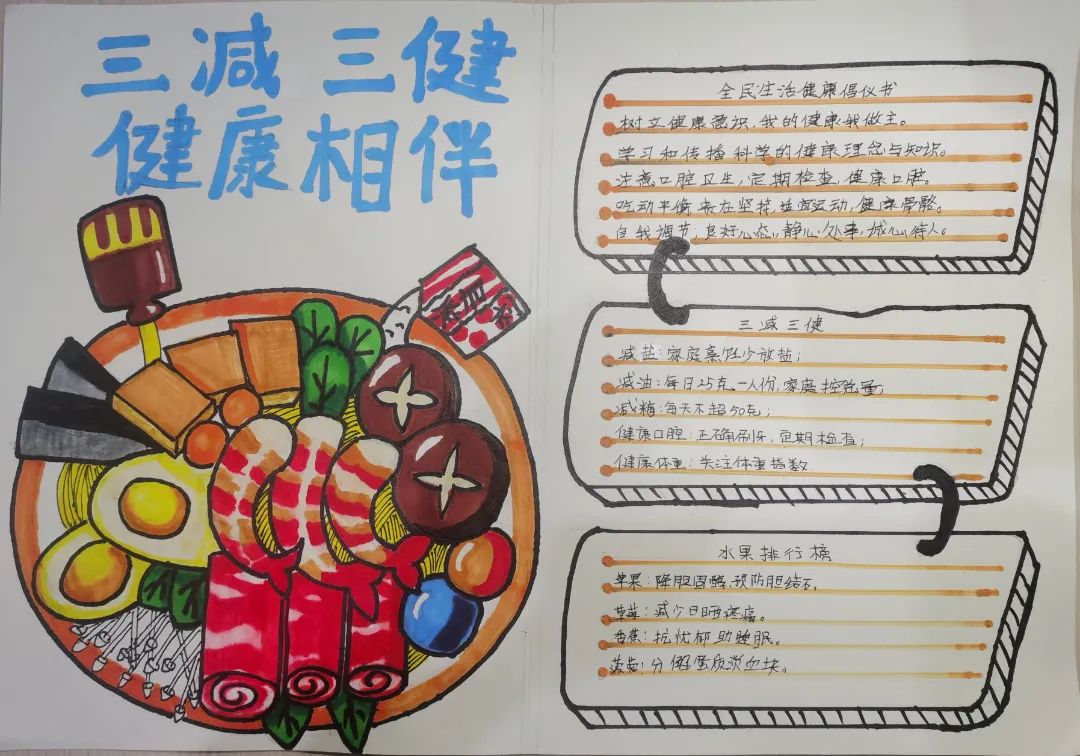 三减 三健
健康相伴
全民生活健康倡仪书
树立健康意识，我的健康我做主。
学习和传播科学的健康理念与知识。
注意口腔卫生，定期检查，健康口腔。
吃动平衡 来在坚持，适宜运动，健康骨骼。
自我调节，良好心态，静心处事，诚心待人。
三减三健
减盐：家庭烹饪少放盐；
减油：每日25克，一人份，家庭控总量；
减糖：每天不超50克；
健康口腔：正确刷牙，定期检查；
健康体重：关注体重指数
水果排行榜
苹果：降胆固醇，预防胆结石。
草莓：减少日晒疼痛。
香蕉：抗忧郁 助睡眠。
菠萝：分解蛋质淡血块。